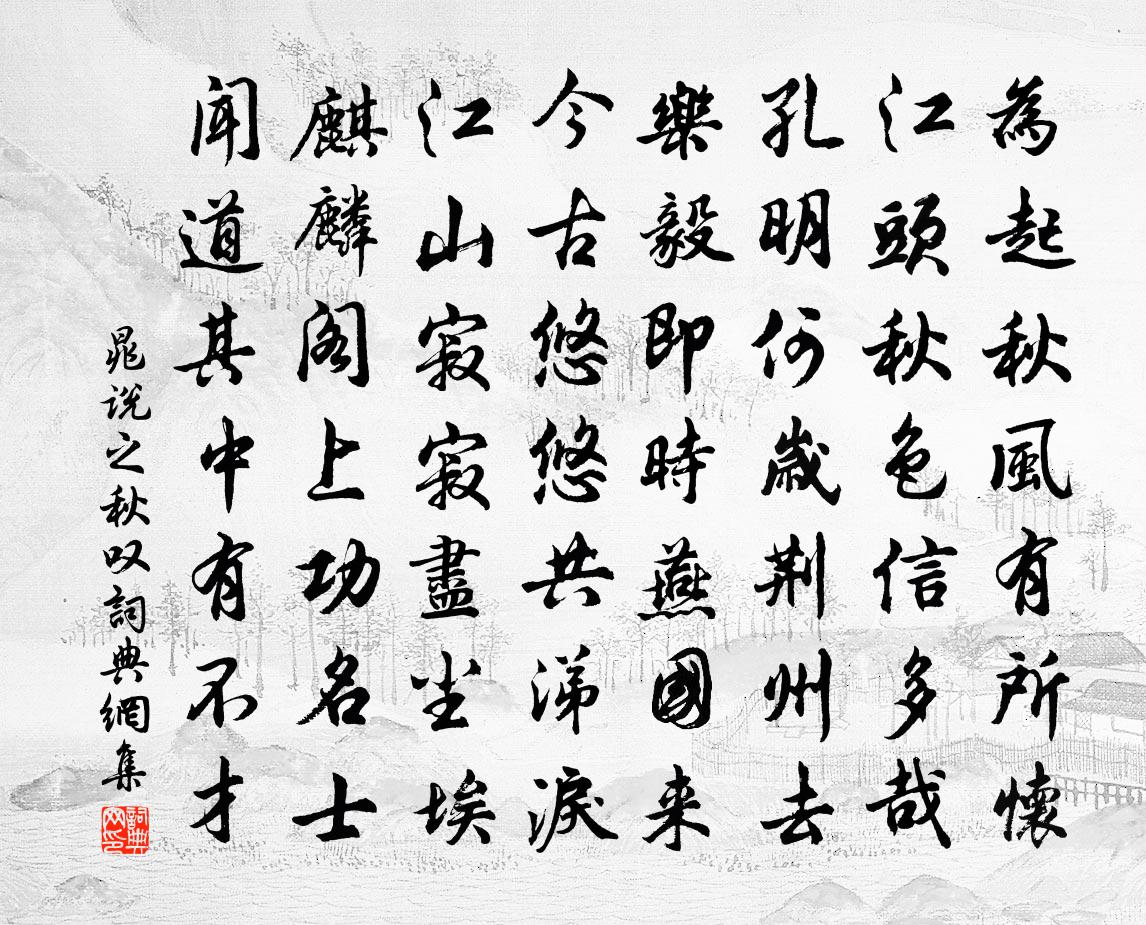 為起秋風有所懷
江頭秋色信多哉
孔明何歲荆州去
樂毅即時燕國来
今古悠悠共涕淚
江山寂寂盡尘埃
麒麟阁上功名士
闻道其中有不才
晁说之秋叹詞典網集
詞典网印